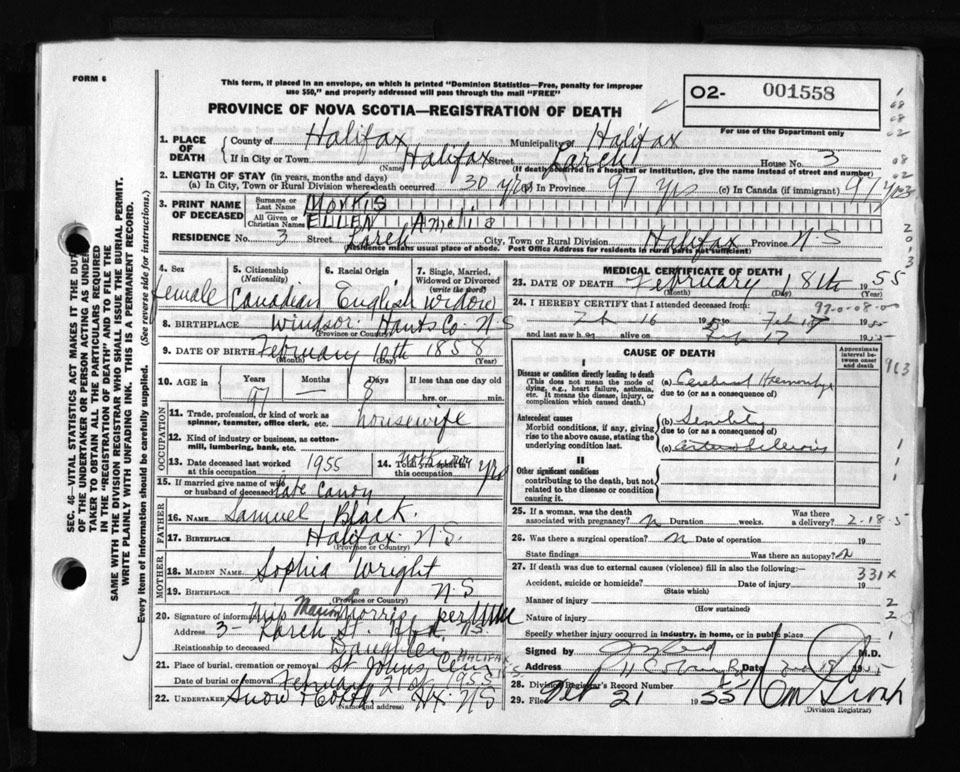 FORM 6
This form, if placed in an envelope, on which is printed "Dominion Statistics—Free, penalty for improper
use $50," and properly addressed will pass through the mail "FREE"
PROVINCE OF NOVA SCOTIA—REGISTRATION OF DEATH
O2- 001558
For use of the Department only
1. PLACE OF DEATH
County of Halifax Municipality of Halifax
If in City or Town Halifax Street Larch House No. 3
(Name) (If death occurred in a hospital or institution, give the name instead of street and number)
2. LENGTH OF STAY (in years, months and days)
(a) In City, Town or Rural Division where death occurred 30 yrs (b) In Province 97 yrs (c) In Canada (if immigrant) 97 yrs
3. PRINT NAME OF DECEASED
Surname or Last Name MORRIS
All Given or Christian Names ELLEN Amelia
RESIDENCE No. 3 Street Larch City, Town or Rural Division Halifax Province N-S
Residence means usual place of abode. Post Office Address for residents in rural parts not sufficient)
4. Sex
Female
5. Citizenship
(Nationality)
Canadian
6. Racial Origin
English
7. Single, Married, Widowed or Divorced
(write the word)
Widow
8. BIRTHPLACE Windsor Hants Co N-S
(Province or Country)
9. DATE OF BIRTH February 10th 1858
(Month) (Day) (Year)
10. AGE in Years Months Days If less than one day old
97 — 8 hrs. or min.
OCCUPATION
11. Trade, profession, or kind of work as
spinner, teamster, office clerk, etc. housewife
12. Kind of industry or business, as cotton-
mill, lumbering, bank, etc.
13. Date deceased last worked
at this occupation 1955
14. Total yrs.
this occupation yrs
15. If married give name of wife
or husband of deceased late
FATHER
16. NAME Samuel Black.
17. BIRTHPLACE Halifax N.S.
(Province or Country)
MOTHER
18. MAIDEN NAME Sophia Wright
19. BIRTHPLACE N-S
(Province or Country)
20. Signature of informant Miss Marion Morris per
Address 3- Larch St. Hfx. N.S.
Relationship to deceased Daughter
21. Place of burial, cremation or removal St Johns Cem HALIFAX
Date of burial or removal February 21st 1955 N.S
22. UNDERTAKER Snow & Co Ltd. Hx N-S
(Name and address)
MEDICAL CERTIFICATE OF DEATH
23. DATE OF DEATH February 18th 1955
(Month) (Day) (Year)
24. I HEREBY CERTIFY that I attended deceased from:
Feb 16 1955 to Feb 18 1955
and last saw h er alive on Feb 17 1955
CAUSE OF DEATH
Approximate interval between onset and death
I
Disease or condition directly leading to death
(This does not mean the mode of dying, e.g., heart failure, asthenia, etc. It means the disease, injury, or complication which caused death.)
(a) Cerebral Hemorrhage
due to (or as a consequence of)
Antecedent causes
Morbid conditions, if any, giving rise to the above cause, stating the underlying condition last.
(b) Senility
due to (or as a consequence of)
(c) Arteriosclerosis
II
Other significant conditions
contributing to the death, but not related to the disease or condition causing it.
25. If a woman, was the death
associated with pregnancy? n Duration weeks. Was there a delivery? 2-18-5
26. Was there a surgical operation? n Date of operation 19
State findings Was there an autopsy? n
27. If death was due to external causes (violence) fill in also the following:—
331x
Accident, suicide or homicide? Date of injury 19
(State which)
Manner of injury
(How sustained)
Nature of injury
Specify whether injury occurred in industry, in home, or in public place
Signed by M.D.
Address Date Feb 18 1955
28. Division Registrar's Record Number
29. Filed Feb 21 1955
(Division Registrar)
SEC. 46—VITAL STATISTICS ACT MAKES IT THE DUTY
OF THE UNDERTAKER OR PERSON ACTING AS UNDER-
TAKER TO OBTAIN ALL THE PARTICULARS REQUIRED
IN THE "REGISTRATION OF DEATH" AND TO FILE THE
SAME WITH THE DIVISION REGISTRAR WHO SHALL ISSUE THE BURIAL PERMIT.
WRITE PLAINLY WITH UNFADING INK. THIS IS A PERMANENT RECORD.
Every item of information should be carefully supplied. (See reverse side for instructions.)